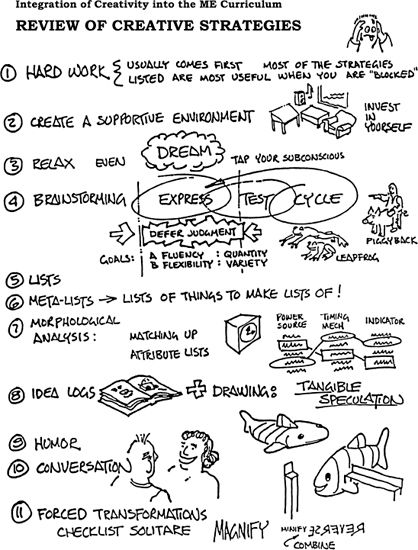 Integration of Creativity into the ME Curriculum
REVIEW OF CREATIVE STRATEGIES
① HARD WORK { USUALLY COMES FIRST MOST OF THE STRATEGIES
LISTED ARE MOST USEFUL WHEN YOU ARE "BLOCKED"
② CREATE A SUPPORTIVE ENVIRONMENT
INVEST IN YOURSELF
③ RELAX EVEN DREAM TAP YOUR SUBCONSCIOUS
④ BRAINSTORMING EXPRESS TEST CYCLE
DEFER JUDGMENT
GOALS: A FLUENCY : QUANTITY
B FLEXIBILITY : VARIETY
LEAPFROG
PIGGYBACK
⑤ LISTS
⑥ META-LISTS → LISTS OF THINGS TO MAKE LISTS OF!
⑦ MORPHOLOGICAL
ANALYSIS: MATCHING UP
ATTRIBUTE LISTS
POWER SOURCE
TIMING MECH
INDICATOR
⑧ IDEA LOGS + DRAWING: TANGIBLE
SPECULATION
⑨ HUMOR
⑩ CONVERSATION
⑪ FORCED TRANSFORMATIONS
CHECKLIST SOLITARE
MAGNIFY
MINIFY REVERSE
COMBINE